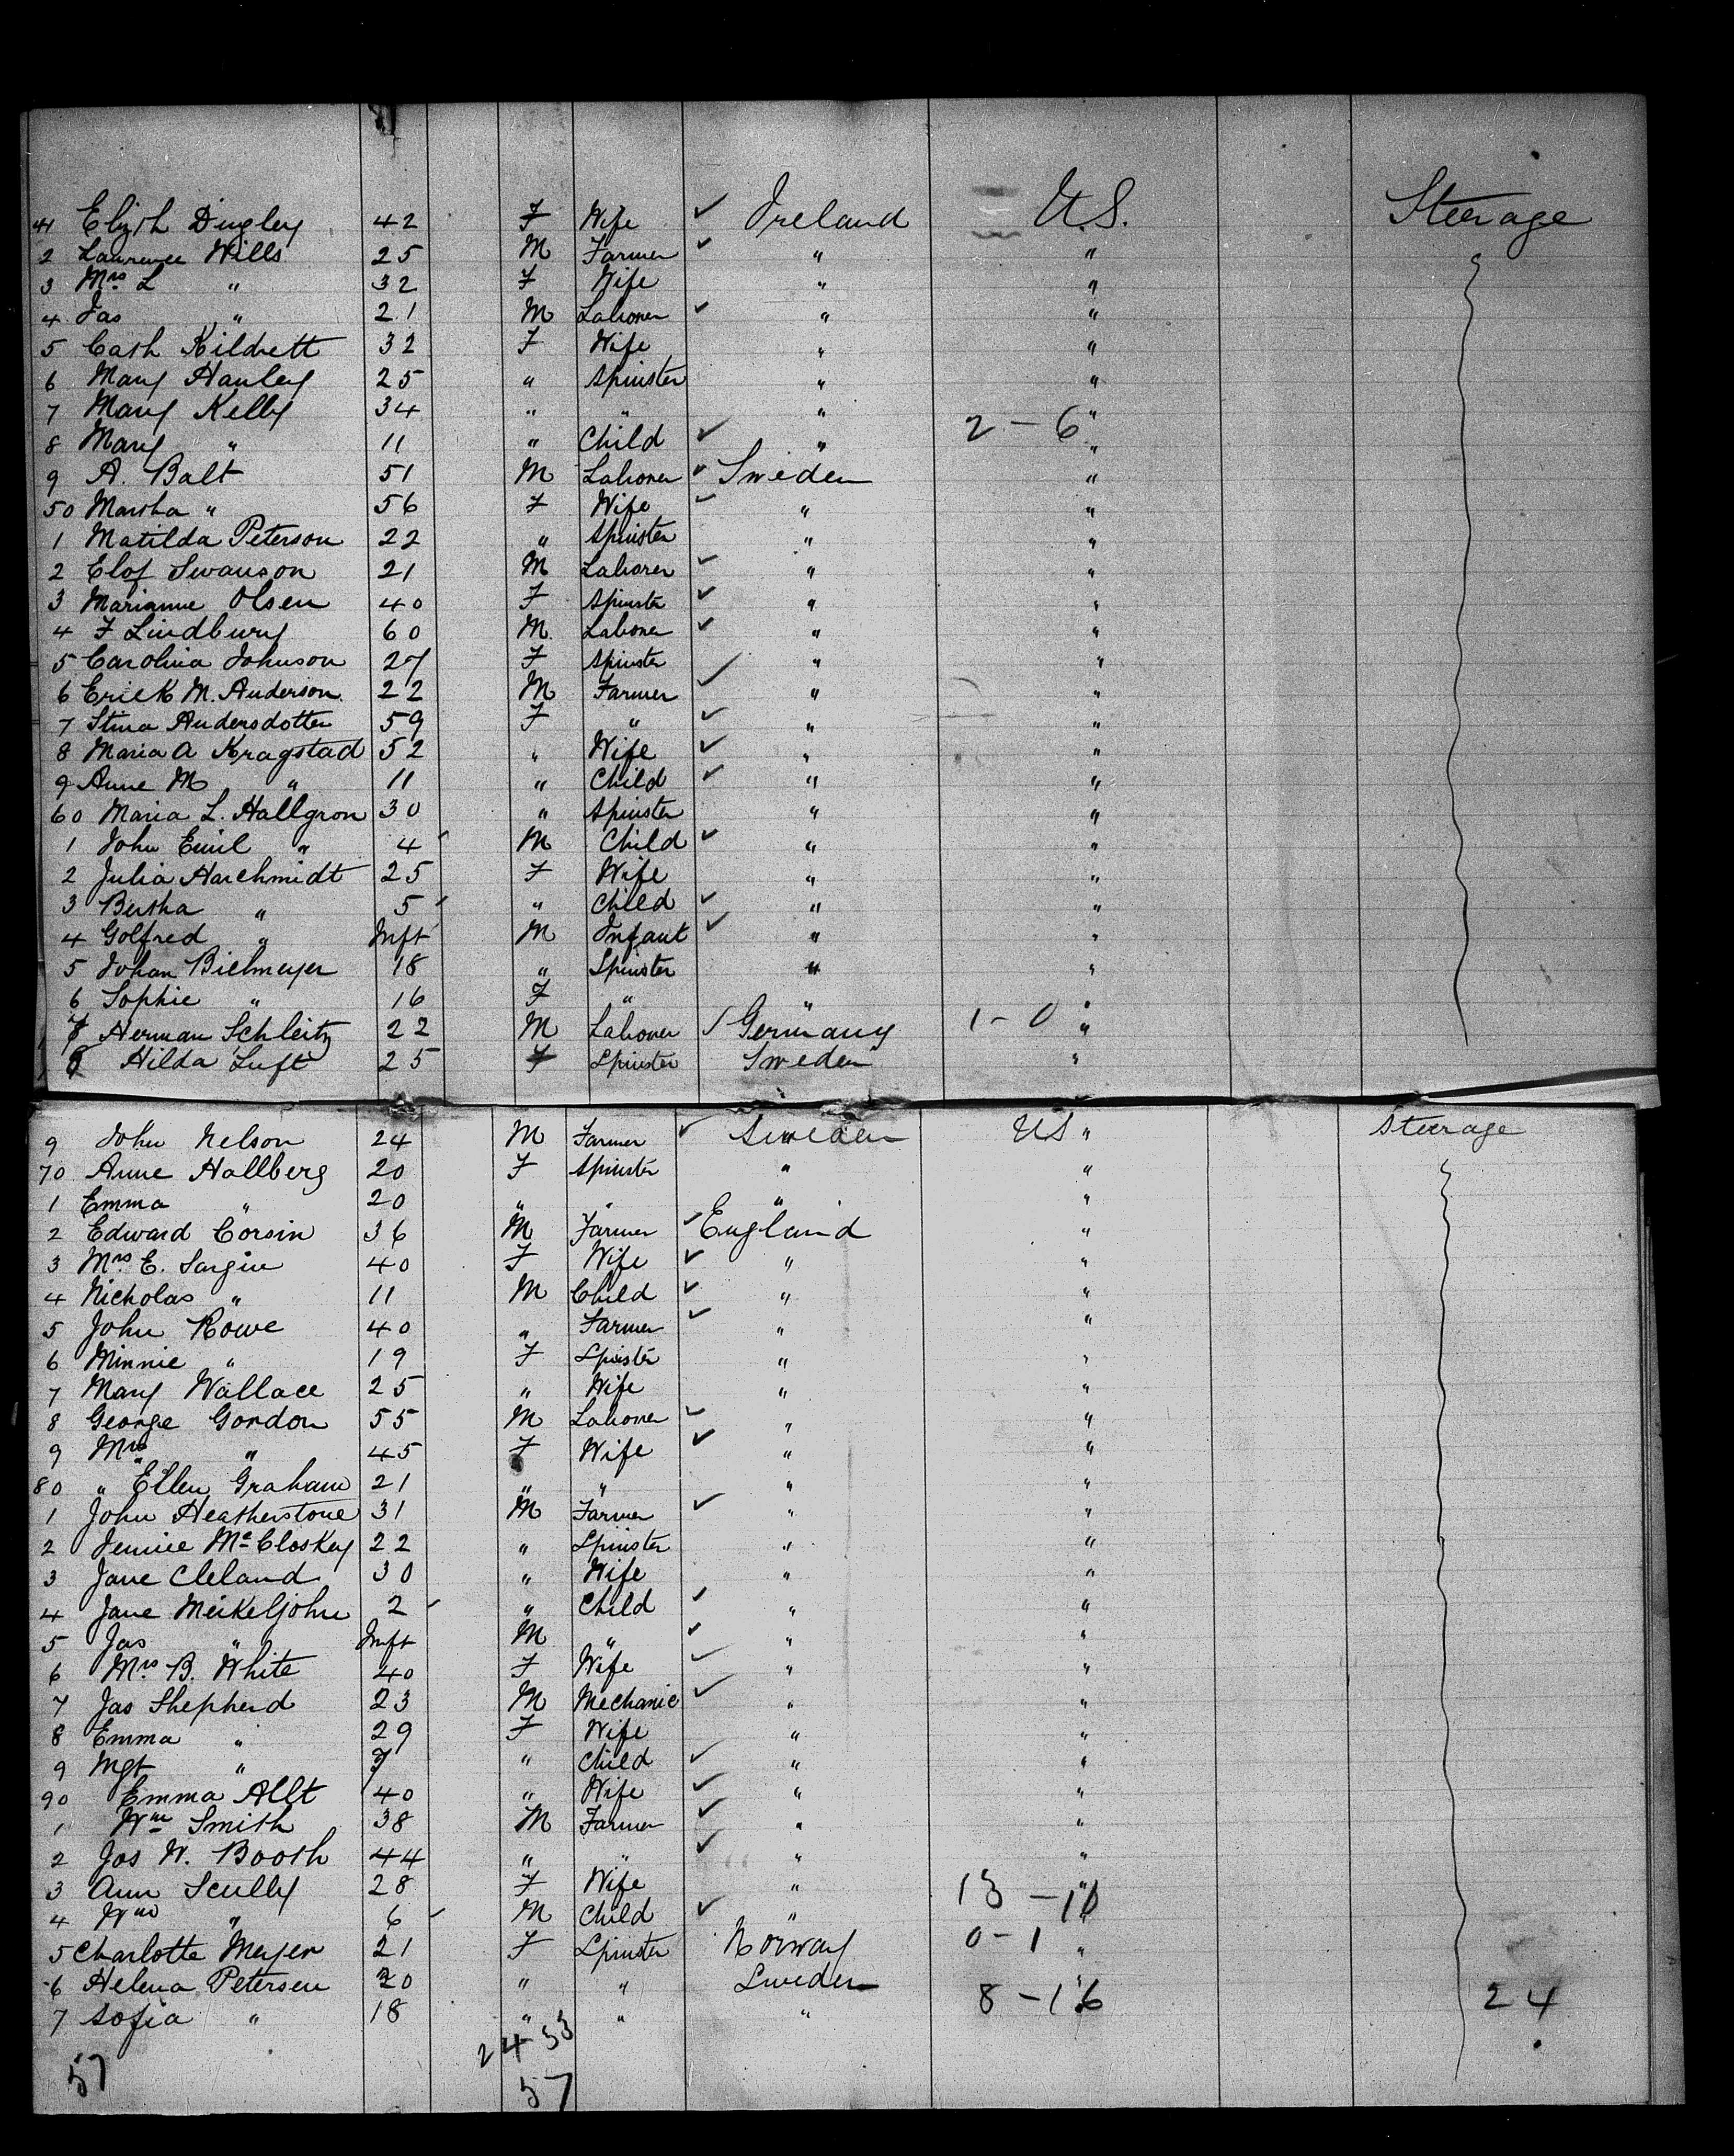 41 Elizth Dingley 42 F Wife ✓ Ireland U.S. Steerage
2 Laurence Wills 25 M Farmer ✓ " "
3 Mrs L " 32 F Wife " "
4 Jas " 21 M Laborer ✓ " "
5 Cath Kildrett 32 F Wife " "
6 Mary Hanley 25 " Spinster " "
7 Mary Kelly 34 " " " 2-6 "
8 Mary " 11 " Child ✓ " "
9 A. Balt 51 M Laborer ✓ Sweden "
50 Martha " 56 F Wife ✓ " "
1 Matilda Peterson 22 " Spinster " "
2 Elof Swanson 21 M Laborer ✓ " "
3 Marianne Olsen 40 F Spinster ✓ " "
4 F Lindbury 60 M. Laborer ✓ " "
5 Carolina Johnson 27 F Spinster ✓ " "
6 Erick M. Anderson 22 M Farmer ✓ " "
7 Stina Andersdotter 59 F " ✓ " "
8 Maria A Kragstad 52 " Wife ✓ " "
9 Anne M " 11 " Child ✓ " "
60 Maria L. Hallgron 30 " Spinster " "
1 John Emil " 4 M Child ✓ " "
2 Julia Harchmidt 25 F Wife " "
3 Bertha " 5 " Child ✓ " "
4 Golfred " Inft M Infant ✓ " "
5 Johan Bielmeyer 18 " Spinster " "
6 Sophie " 16 F " " "
7 Herman Schleitz 22 M Laborer ✓ Germany 1-0 "
8 Hilda Luft 25 F Spinster Sweden "
9 John Nelson 24 M Farmer ✓ Sweden US " Steerage
70 Anne Hallberg 20 F Spinster " "
1 Emma " 20 " " " "
2 Edward Corsin 36 M Farmer ✓ England "
3 Mrs E. Sargin 40 F Wife ✓ " "
4 Nicholas " 11 M Child ✓ " "
5 John Rowe 40 " Farmer ✓ " "
6 Minnie " 19 F Spinster " "
7 Mary Wallace 25 " Wife " "
8 George Gordon 55 M Laborer ✓ " "
9 Mrs " 45 F Wife ✓ " "
80 " Ellen Graham 21 " " " "
1 John Heatherstone 31 M Farmer ✓ " "
2 Jennie McCloskey 22 " Spinster " "
3 Jane Cleland 30 " Wife " "
4 Jane Meikeljohn 2 " Child ✓ " "
5 Jas " Inft M " ✓ " "
6 Mrs B. White 40 F Wife ✓ " "
7 Jas Shepherd 23 M Mechanic ✓ " "
8 Emma " 29 F Wife " "
9 Mgt " 7 " Child ✓ " "
90 Emma Allt 40 " Wife ✓ " "
1 Wm Smith 38 M Farmer ✓ " "
2 Jos W. Booth 44 " " ✓ " "
3 Ann Scully 28 F Wife " 13-10 "
4 Wm " 6 M Child ✓ " "
5 Charlotte Meyer 21 F Spinster Norway 0-1 "
6 Helena Petersen 20 " " Sweden 8-16 " 24
7 Sofia " 18 " " "
24-33
57 57